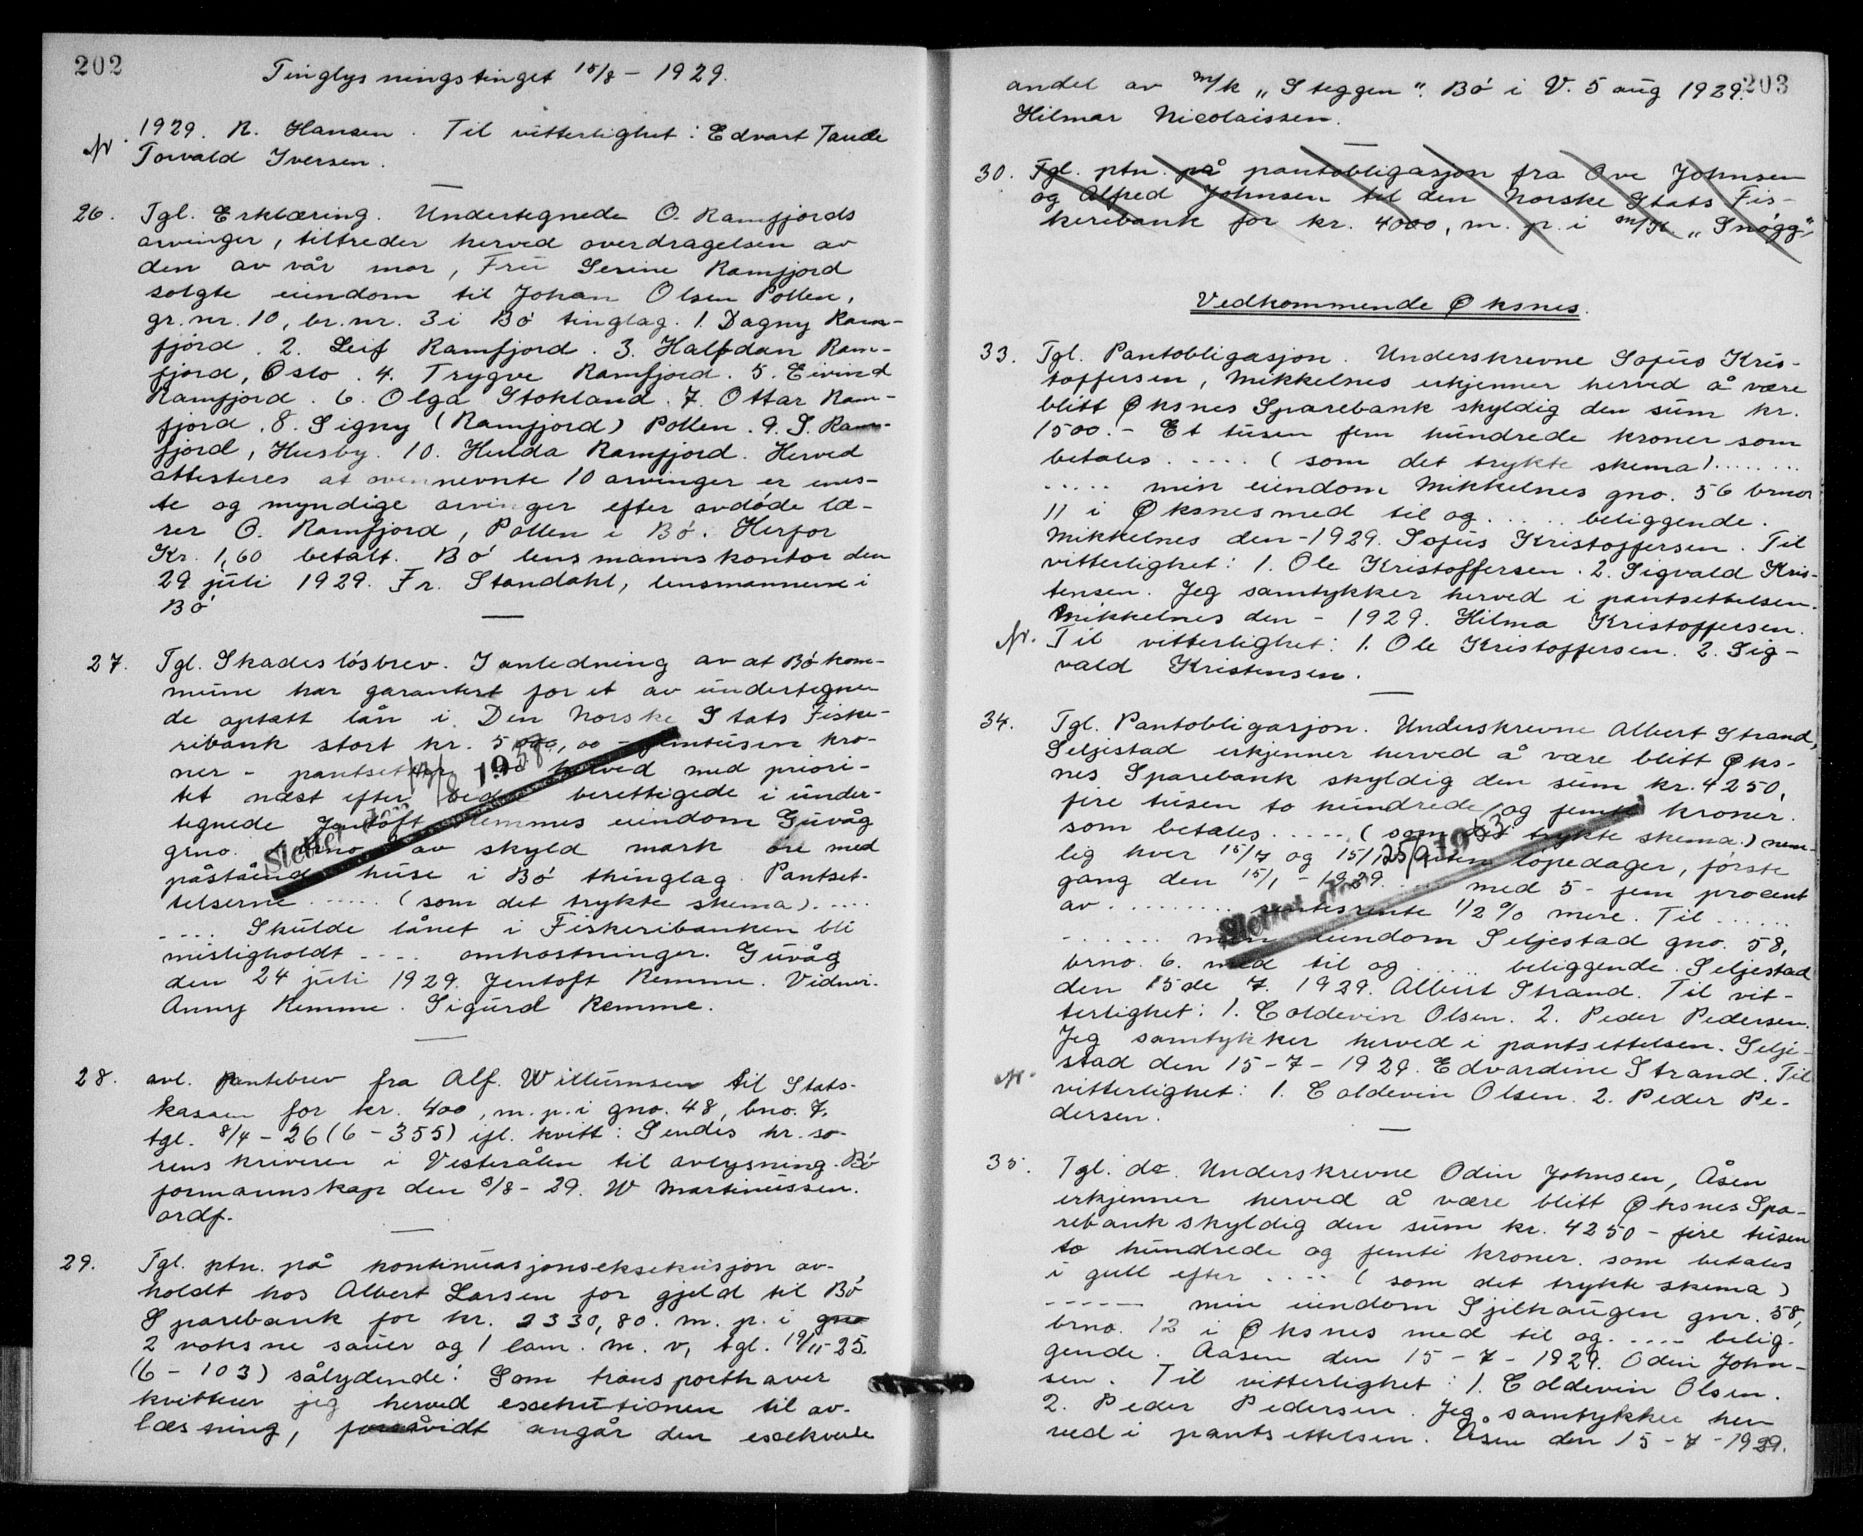 202
Tinglysningstinget 15/8 - 1929.
1929. R. Hansen. Til vitterlighet: Edvart Taude
Torvald Iversen.
26. Tgl. Erklæring. Undertegnede O. Ramfjords
arvinger, tiltreder herved overdragelsen av
den av vår mor, Fru Serine Ramfjord
solgte eiendom til Johan Olsen Pollen,
gr.nr. 10, br.nr. 3 i Bø tinglag. 1. Dagny Ram-
fjord. 2. Leif Ramfjord. 3. Halfdan Ram-
fjord, Oslo. 4. Trygve Ramfjord. 5. Eivind
Ramfjord. 6. Olga Stokland. 7. Ottar Ram-
fjord. 8. Signy (Ramfjord) Pollen. 9. S. Ram-
fjord, Husby. 10. Hulda Ramfjord. Herved
attesteres at ovennevnte 10 arvinger er enes-
te og myndige arvinger efter avdøde læ-
rer O. Ramfjord, Pollen i Bø. Herfor
Kr. 1,60 betalt. Bø lensmannskontor den
29 juli 1929. Fr. Standahl, lensmannen i
Bø
27. Tgl. Skadesløsbrev. I anledning av at Bø kom-
mune har garantert for et av undertegne
de optatt lån i Den Norske Stats Fiske-
ribank stort kr. 5000,00 - femtusen kro-
ner - pantsetter herved med priori-
tet næst efter berettigede i under-
tegnede Jentoft Remmes eiendom Guvåg
grno. brno. av skyld mark øre med
påstående huse i Bø thinglag. Pantset-
telserne ..... (som det trykte skema) .....
.... Skulde lånet i Fiskeribanken bli
misligholdt .... omkostninger. Guvåg
den 24 juli 1929. Jentoft Remme. Vidner.
Anny Remme. Sigurd Remme.
Slettet 1958
28. avl. Pantebrev fra Alf. Willumsen til Stats-
kassen for kr. 400, m. p. i gno. 48, bno. 7.
tgl. 8/4 - 26 (6 - 355) ifl. kvitt: Sendes hr. so-
renskriveren i Vesterålen til avlysning. Bø
formannskap den 9/8 - 29. W Martinussen.
ordf.
29. Tgl. ptn. på kontinuasjonseksekusjon av-
holdt hos Albert Larsen for gjeld til Bø
Sparebank for kr. 2330,80. m. p. i gno
2 voksne sauer og 1 lam. m. v, tgl. 19/11-25.
(6 - 103) sålydende: Som transporthaver
kvitterer jeg herved exsekutionen til av-
læsning, forsåvidt angår den exekverte
203
andel av m/k „Steggen". Bø i V. 5 aug 1929.
Hilmar Nicolaissen.
30. Tgl. ptn. på pantobligasjon fra Ove Johnsen
og Alfred Johnsen til den Norske Stats Fis-
keribank for kr. 4000, m. p. i m/k „Snøgg"
Vedkommende Øksnes.
33. Tgl. Pantobligasjon. Underskrevne Sofus Kris-
toffersen, Mikkelnes erkjenner herved å være
blitt Øksnes Sparebank skyldig den sum kr.
1500.- Et tusen fem hundrede kroner som
betales ..... (som det trykte skema) ........
..... min eiendom Mikkelnes gno. 56 brnor
11 i Øksnes med til og ..... beliggende.
Mikkelnes den - 1929. Sofus Kristoffersen. Til
vitterlighet: 1. Ole Kristoffersen. 2. Sigvald Kris-
tensen. Jeg samtykker herved i pantsettelsen.
Mikkelnes den - 1929. Hilma Kristoffersen.
Til vitterlighet: 1. Ole Kristoffersen. 2. Sig-
vald Kristensen.
34. Tgl. Pantobligasjon. Underskrevne Albert Strand,
Seljestad erkjenner herved å være blitt Øks-
nes Sparebank skyldig den sum kr. 4250,
fire tusen to hundrede og femti kroner.
som betales ..... (som det trykte skema.) nem-
lig hver 15/7 og 15/1 uten løpedager, første
gang den 15/1 - 1929 .... med 5 - fem procent
av ......... morarente 1/2 % mere. Til .....
...... min eiendom Seljestad gno. 58,
brno. 6. med til og ..... beliggende. Seljestad
den 15de 7. 1929. Albert Strand. Til vit-
terlighet: 1. Coldevin Olsen. 2. Peder Pedersen.
Jeg samtykker herved i pantsettelsen. Selje-
stad den 15 - 7 - 1929. Edvardine Strand. Til
vitterlighet: 1. Coldevin Olsen. 2. Peder Pe-
dersen.
Slettet den 1963
35. Tgl. do. Underskrevne Odin Johnsen, Åsen
erkjenner herved å være blitt Øksnes Spa-
rebank skyldig den sum kr. 4250 - fire tusen
to hundrede og femti kroner. som betales
i gull efter ..... (som det trykte skema)
..... min eiendom Sjilhaugen gnr. 58,
brno. 12 i Øksnes med til og ..... belig-
gende. Aasen den 15 - 7 - 1929. Odin John-
sen. Til vitterlighet: 1. Coldevin Olsen.
2. Peder Pedersen. Jeg samtykker her
ved i pantsettelsen. Åsen den 15 - 7 - 1929.